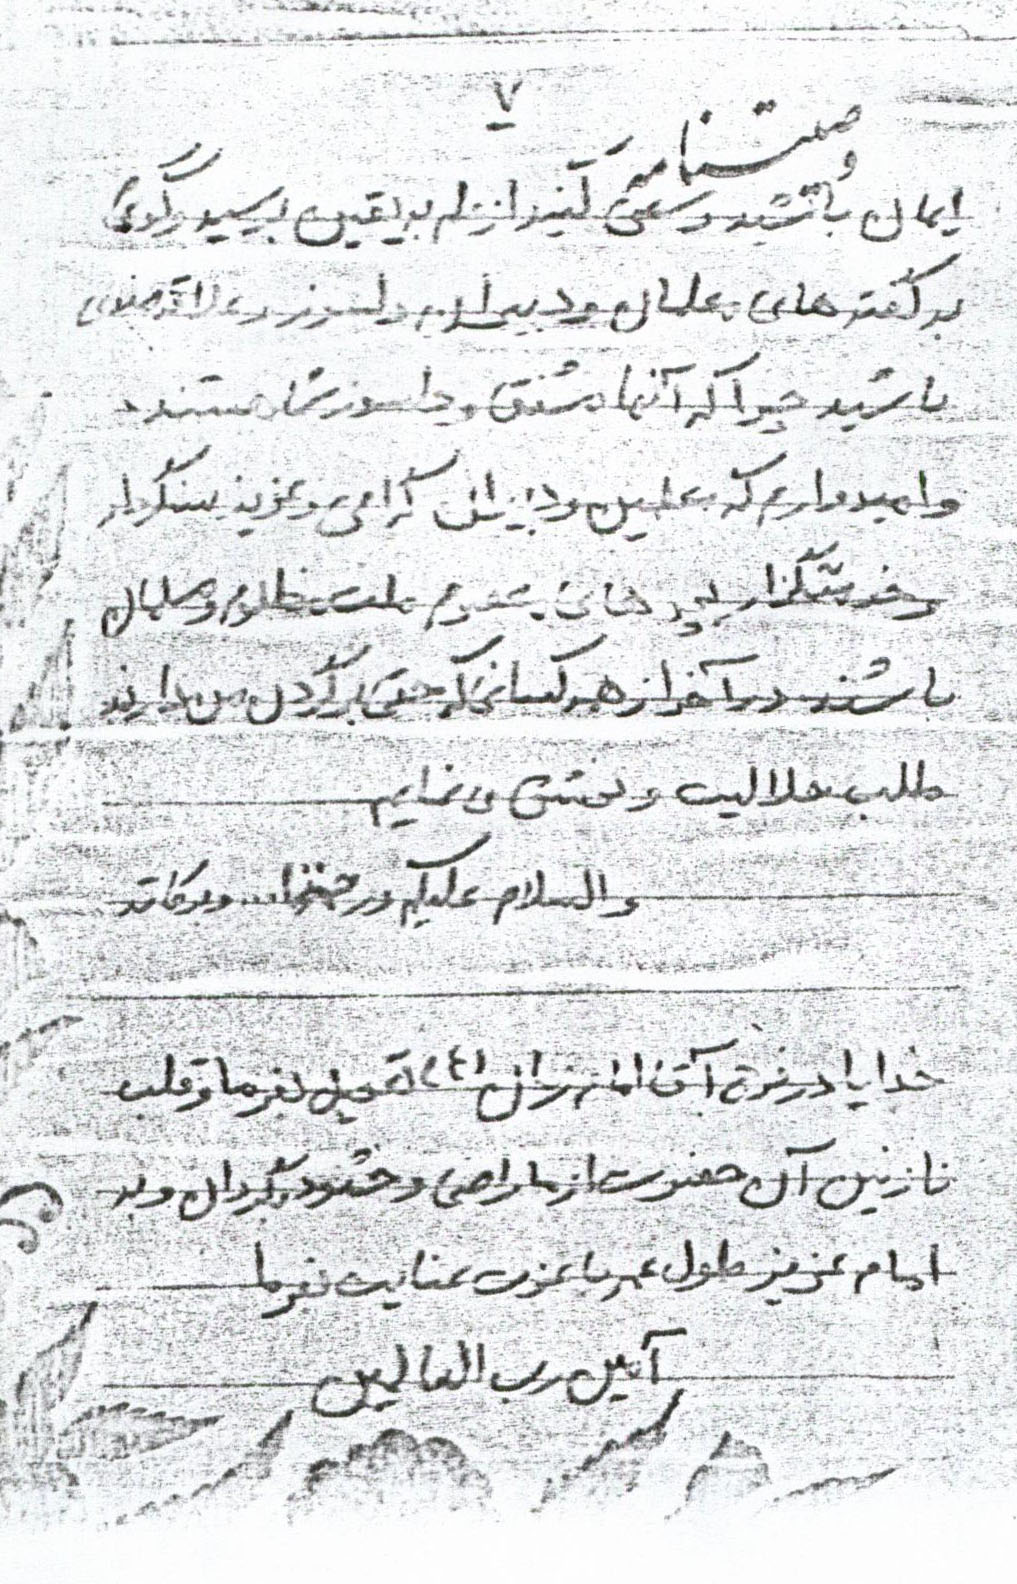 ۷
وصیتنامه
ایمان باشید و سعی کنید از علم به یقین برسید و گوش
به گفته های معلمان و دبیران دلسوز و علاقه مندی
باشید چرا که آنها مشفق و دلسوز شما هستند
و امیدوارم که معلمین و دبیران گرامی و عزیز سنگردار
و خدمتگزار بچه های محروم ملت مظلوم و مسلمان
باشند در آخر از هر کسانی که حقی بر گردن من دارند
طلب حلالیت و بخشش می نمایم
والسلام علیکم و رحمة الله و برکاته
خدایا در فرج آقا امام زمان (ع) تعجیل بفرما و قلب
نازنین آن حضرت از ما راضی و خشنود بگردان و به
امام عزیز طول عمر با عزت عنایت بفرما
آمین رب العالمین